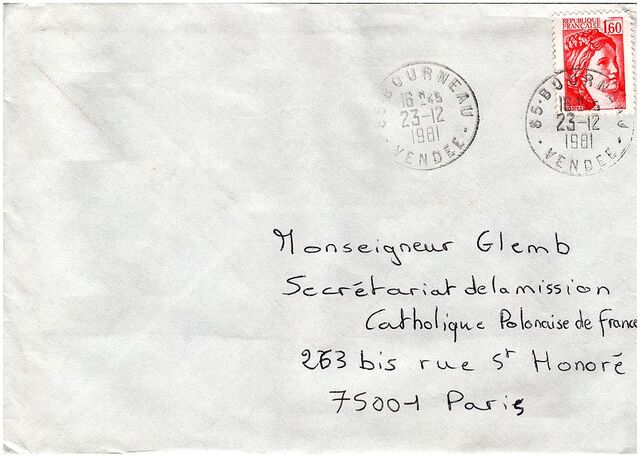 REPUBLIQUE
FRANÇAISE
1,60
85-BOURNEAU
16H45
23-12
1981
VENDEE
85-BOURN
23-12
1981
VENDEE
Monseigneur Glemb
Secrétariat de la mission
Catholique Polonaise de France
263 bis rue St Honoré
75001 Paris